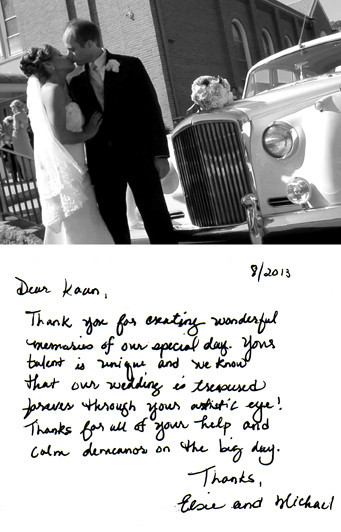 8/2013
Dear Karen,
Thank you for creating wonderful
memories of our special day. Your
talent is unique and we know
that our wedding is treasured
forever through your artistic eye!
Thanks for all of your help and
calm demeanor on the big day.
Thanks,
Elsie and Michael